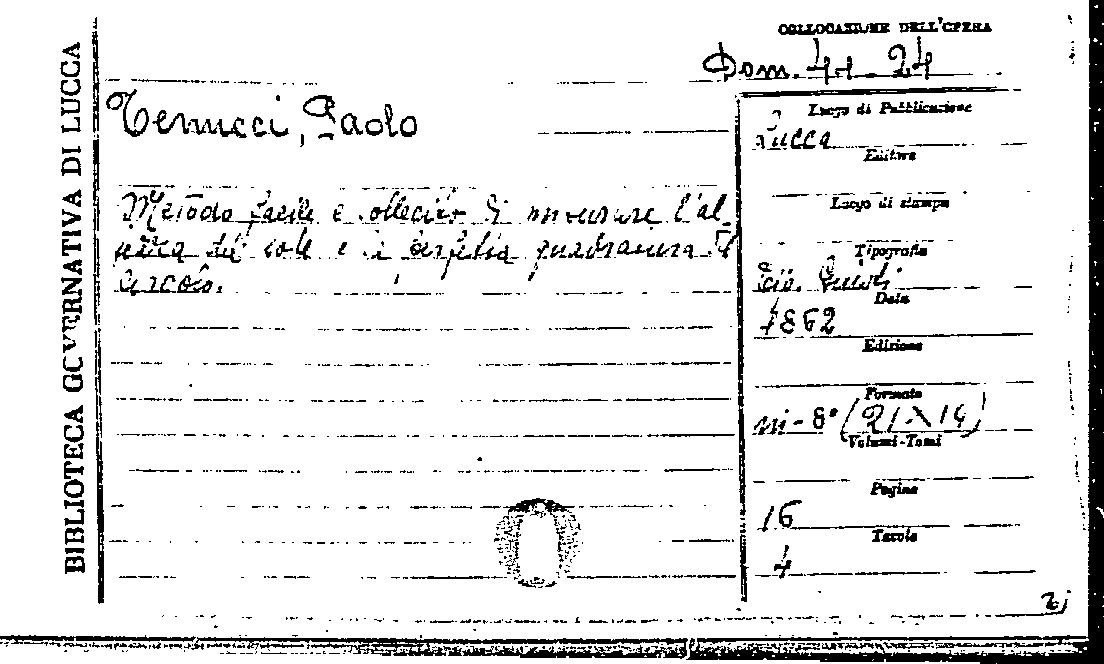 BIBLIOTECA GOVERNATIVA DI LUCCA
COLLOCAZIONE DELL'OPERA
Dom. 41-24
Tenucci, Paolo
Metodo facile e sollecito di misurare l'al-
tezza del sole e la perfetta quadratura del
circolo.
Luogo di Pubblicazione
Lucca
Editore
Luogo di stampa
Tipografia
Tip. Giusti
Data
1862
Edizione
Formato
in-8° (21 X 14)
Volumi-Tomi
Pagine
16
Tavole
4